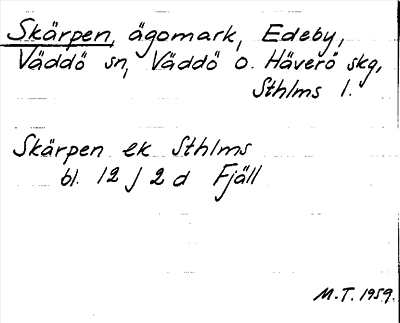 Skärpen, ägomark, Edeby,
Väddö sn, Väddö o. Häverö skg,
Sthlms l.
Skärpen ek Sthlms
bl. 12 J 2 d Fjäll
M.T. 1959.